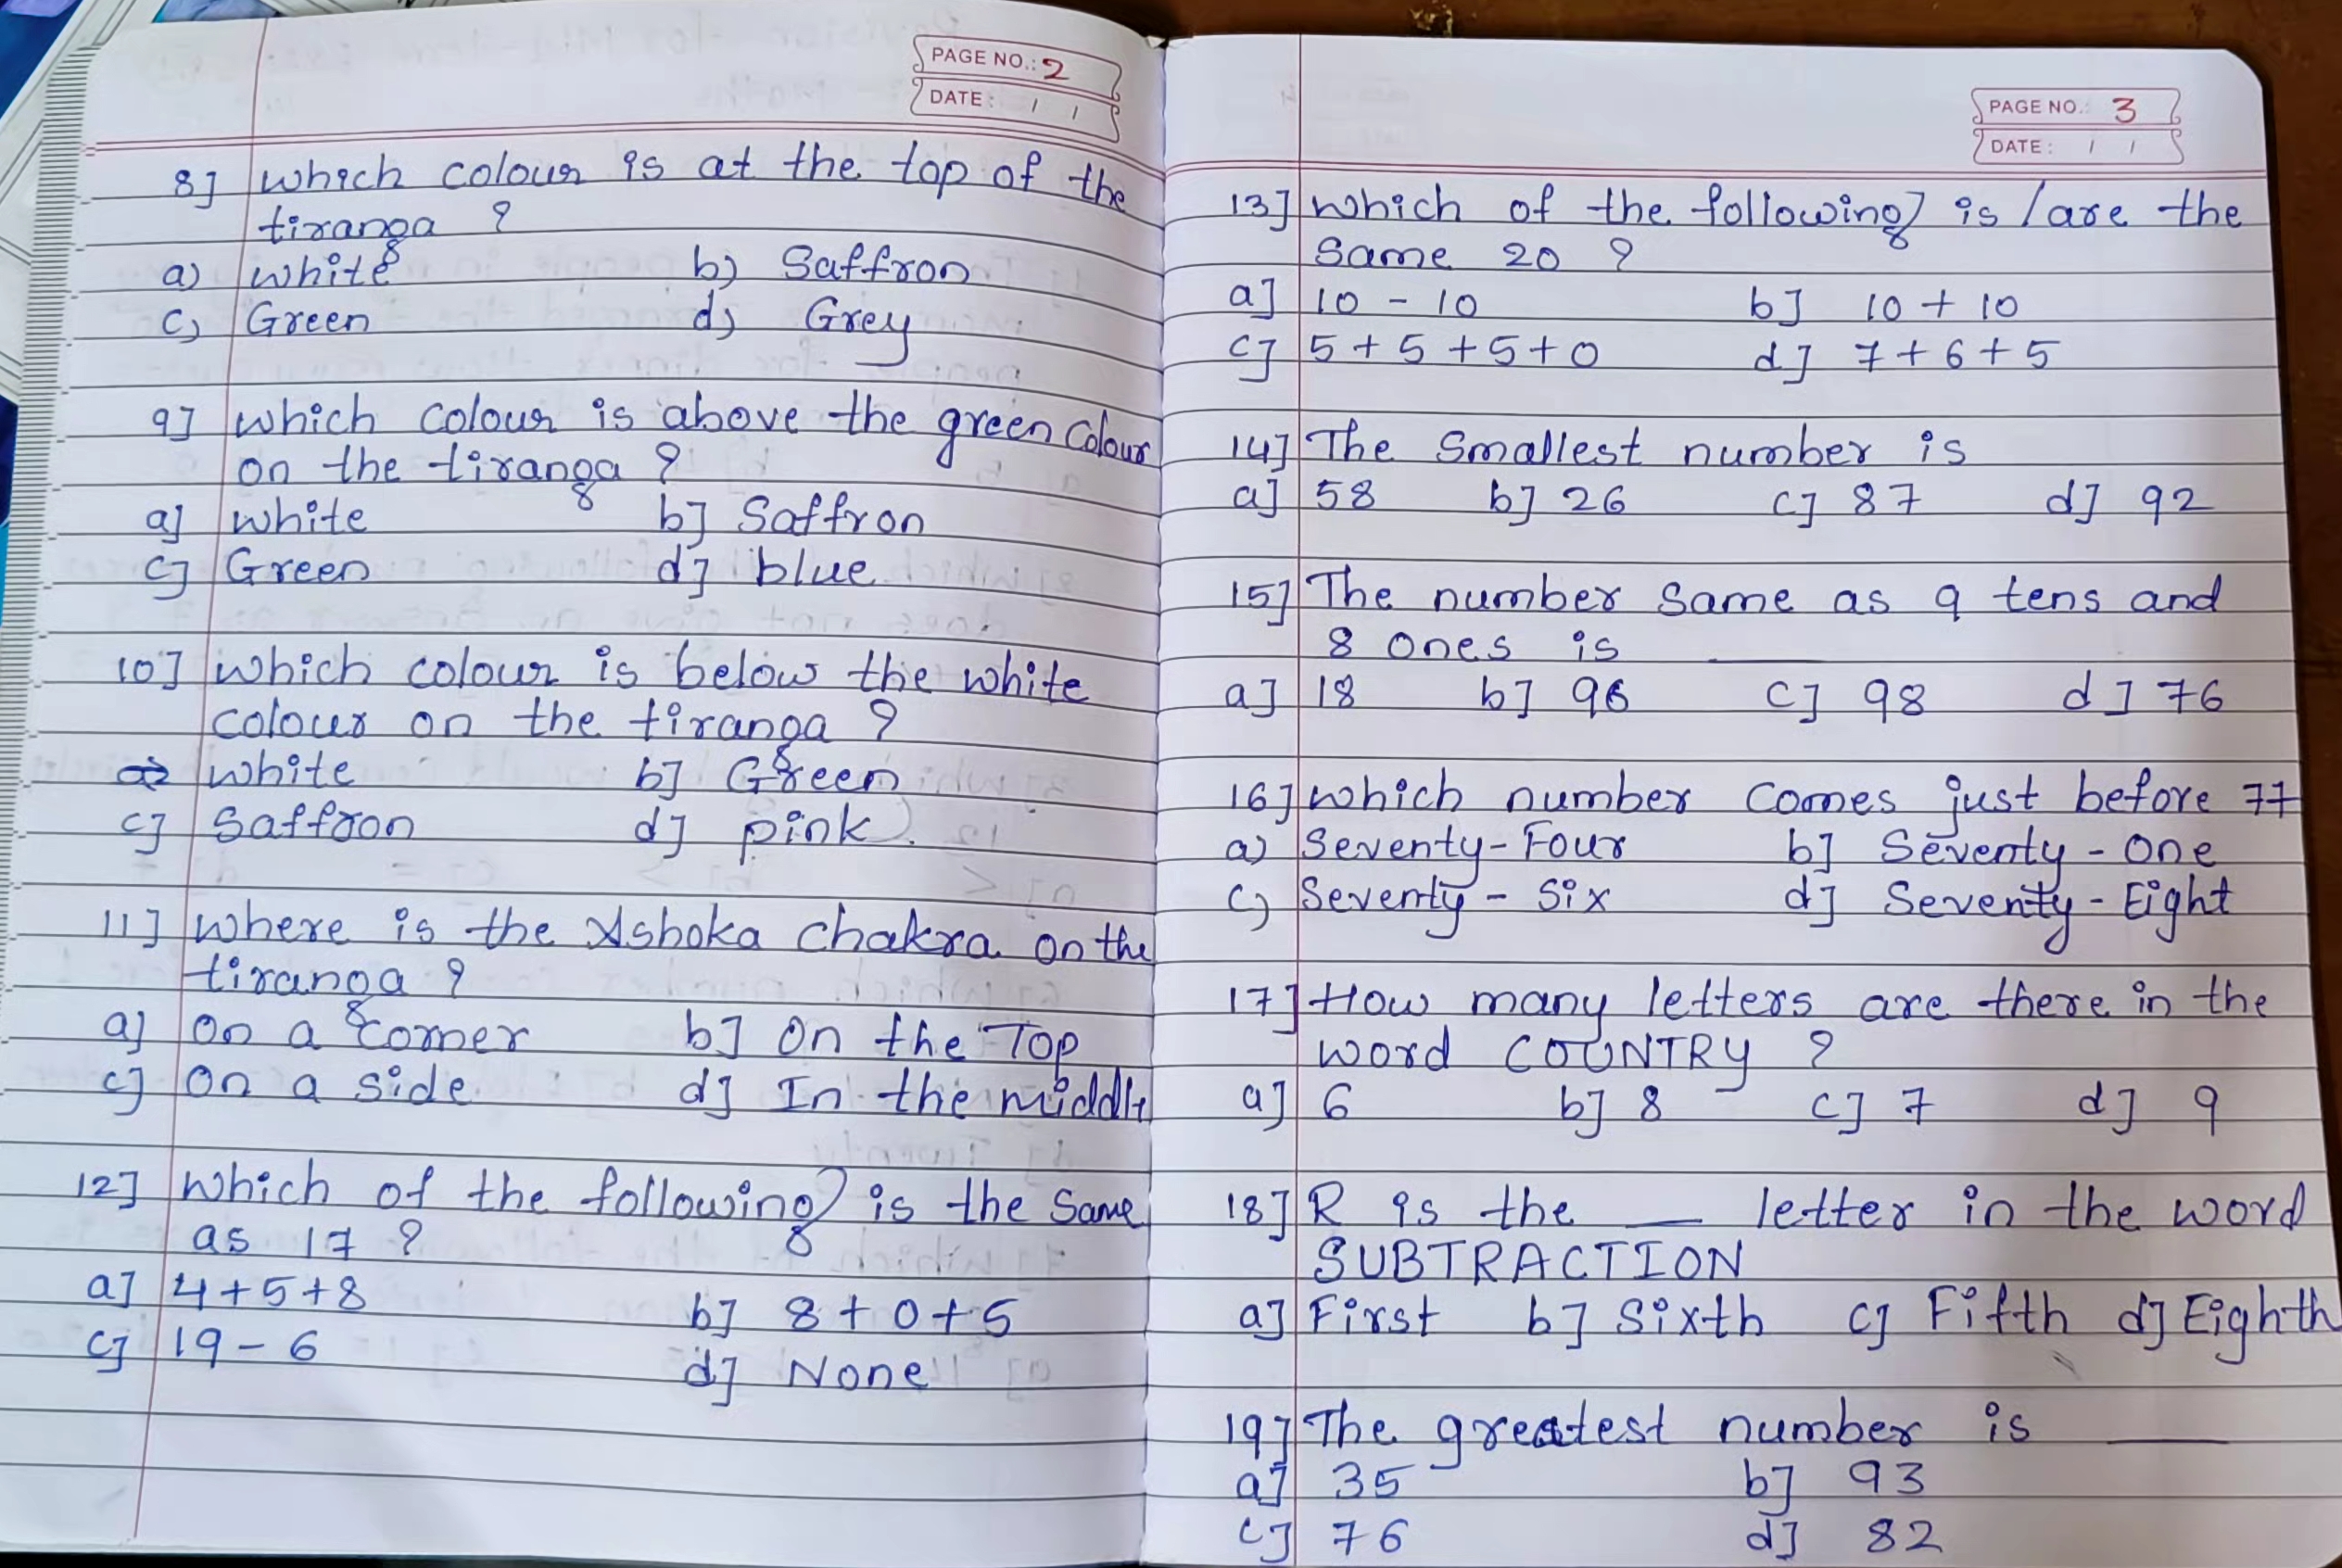 PAGE NO.: 2
DATE: / /
8] Which colour is at the top of the
tiranga ?
a) White b) Saffron
c) Green d) Grey
9] Which colour is above the green colour
on the tiranga ?
a] White b] Saffron
c] Green d] blue
10] Which colour is below the white
colour on the tiranga ?
a) White b] Green
c] Saffron d] pink.
11] Where is the Ashoka chakra on the
tiranga ?
a] On a corner b] On the Top
c] On a side d] In the middle
12] Which of the following is the same
as 17 ?
a] 4+5+8
b] 8+0+5
c] 19-6
d] None
PAGE NO.: 3
DATE: / /
13] Which of the following is / are the
same 20 ?
a] 10 - 10 b] 10 + 10
c] 5+5+5+0 d] 7+6+5
14] The Smallest number is
a] 58 b] 26 c] 87 d] 92
15] The number same as 9 tens and
8 ones is ____
a] 18 b] 96 c] 98 d] 76
16] Which number comes just before 77
a) Seventy-Four b] Seventy-One
c) Seventy-Six d] Seventy-Eight
17] How many letters are there in the
word COUNTRY ?
a] 6 b] 8 c] 7 d] 9
18] R is the __ letter in the word
SUBTRACTION
a] First b] Sixth c] Fifth d] Eighth
19] The greatest number is ____
a] 35 b] 93
c] 76 d] 82